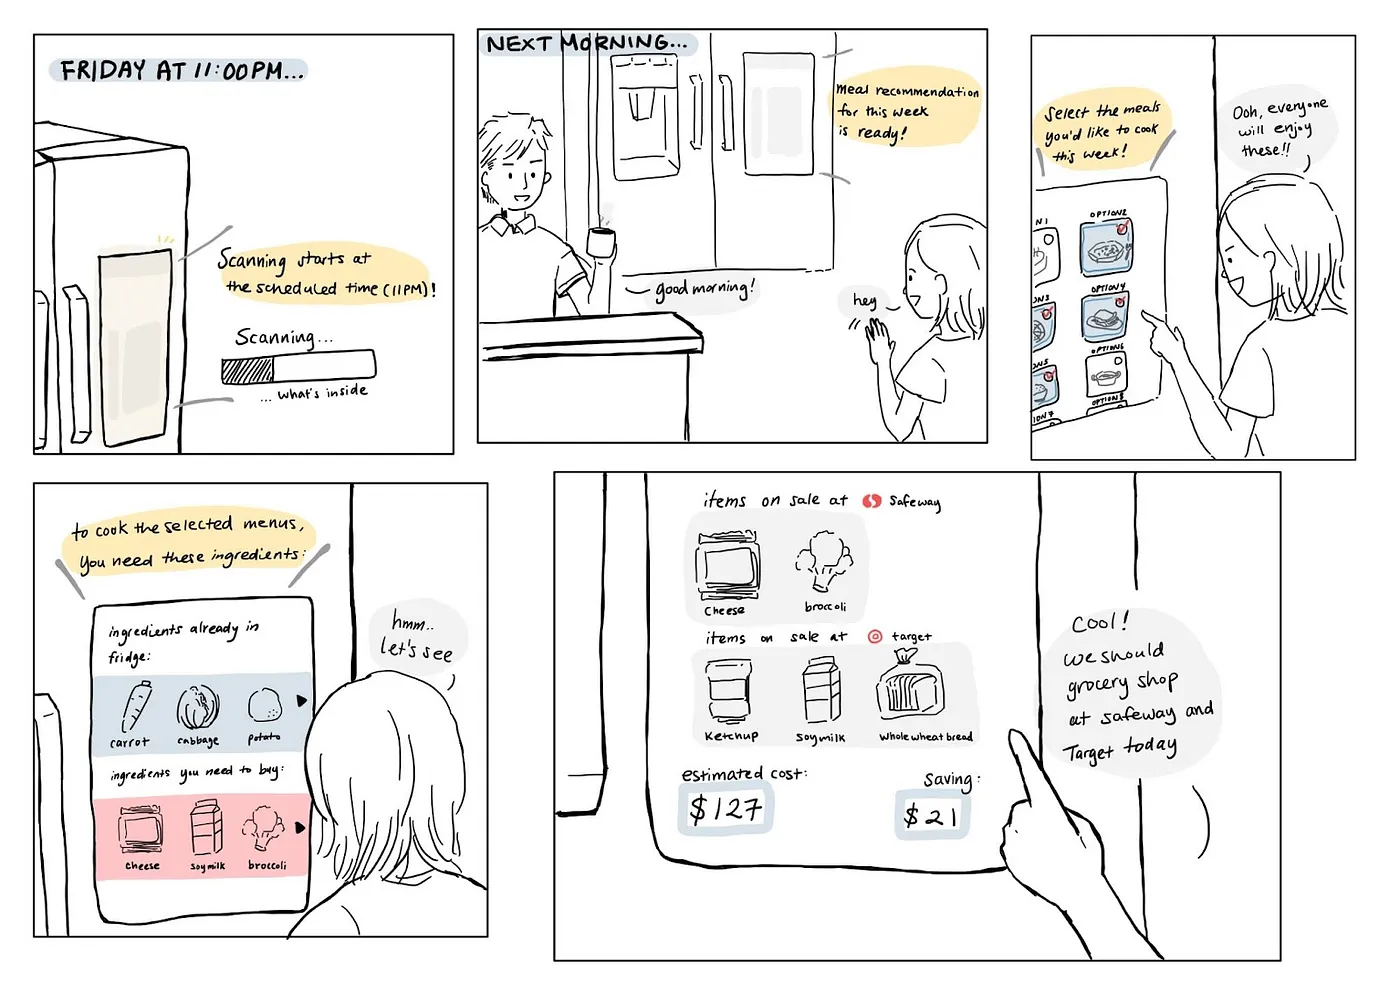 FRIDAY AT 11:00PM...
Scanning starts at
the scheduled time (11PM)!
Scanning...
... what's inside
NEXT MORNING...
Meal recommendation
for this week
is ready!
good morning!
hey
Select the meals
you'd like to cook
this week!
Ooh, everyone
will enjoy
these!!
N1
OPTION2
N3
OPTION4
ON5
OPTION6
ION7
OPTION8
to cook the selected menus,
You need these ingredients:
ingredients already in
fridge:
carrot
cabbage
potato
ingredients you need to buy:
cheese
soymilk
broccoli
hmm..
let's see
items on sale at Safeway
Cheese
broccoli
items on sale at target
Ketchup
soymilk
whole wheat bread
estimated cost:
$127
Saving:
$21
Cool!
we should
grocery shop
at safeway and
Target today